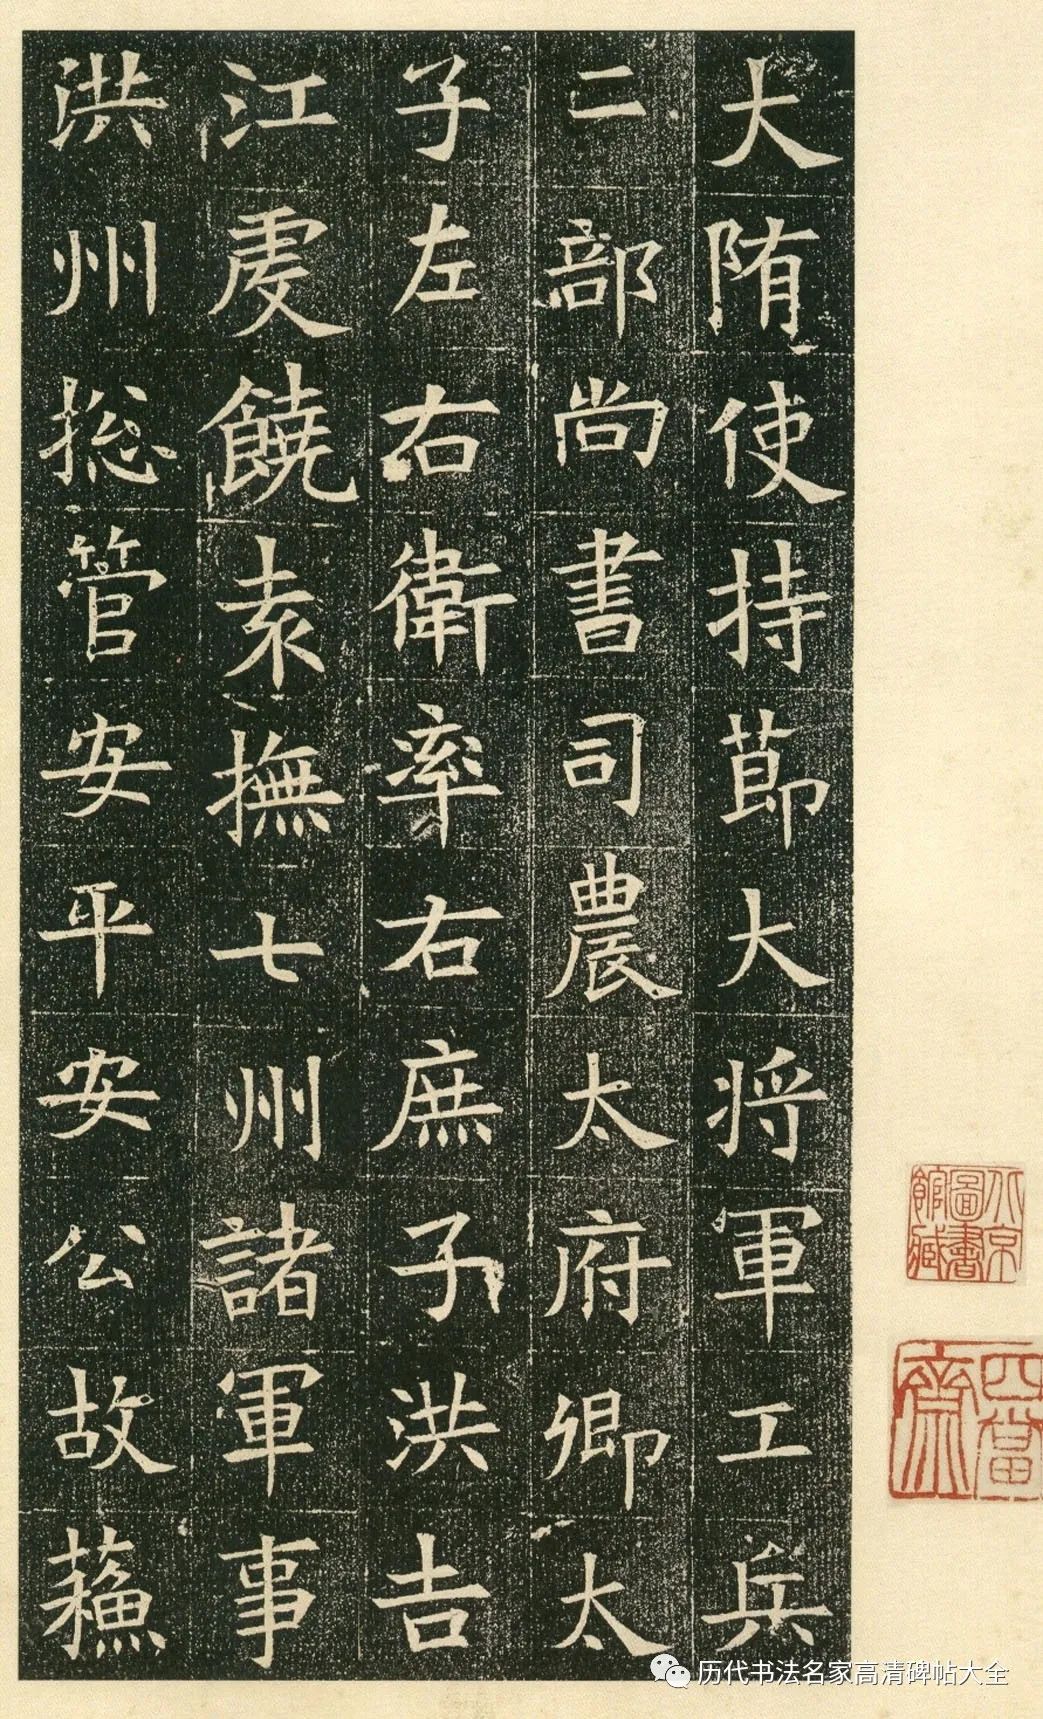 大隋使持節大将軍工兵
二部尚書司農太府卿太
子左右衛率右庶子洪吉
江虔饒袁撫七州諸軍事
洪州総管安平安公故蘓
北京圖書館藏
四當齋
历代书法名家高清碑帖大全